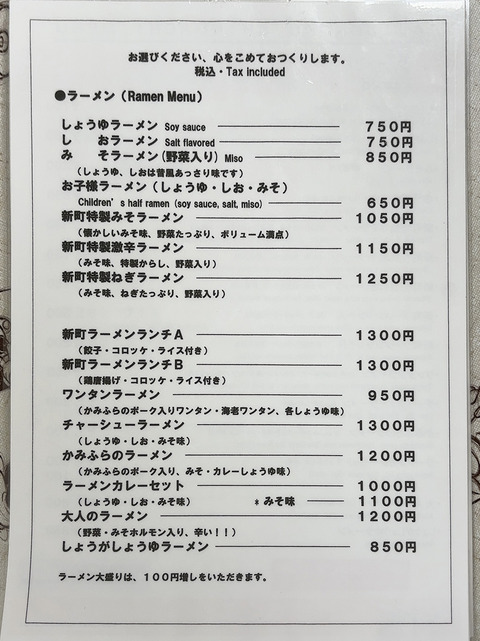 お選びください、心をこめておつくりします。
税込・Tax included
●ラーメン（Ramen Menu）
しょうゆラーメン Soy sauce ―――― 750円
し　おラーメン Salt flavored ―――― 750円
み　そラーメン(野菜入り) Miso ―――― 850円
（しょうゆ、しおは昔風あっさり味です）
お子様ラーメン（しょうゆ・しお・みそ）
Children's half ramen (soy sauce, salt, miso) ―――― 650円
新町特製みそラーメン ―――― 1050円
（懐かしいみそ味、野菜たっぷり、ボリューム満点）
新町特製激辛ラーメン ―――― 1150円
（みそ味、特製からし、野菜入り）
新町特製ねぎラーメン ―――― 1250円
（みそ味、ねぎたっぷり、野菜入り）
新町ラーメンランチA ―――― 1300円
（餃子・コロッケ・ライス付き）
新町ラーメンランチB ―――― 1300円
（鶏唐揚げ・コロッケ・ライス付き）
ワンタンラーメン ―――― 950円
（かみふらのポーク入りワンタン・海老ワンタン、各しょうゆ味）
チャーシューラーメン ―――― 1300円
（しょうゆ・しお・みそ味）
かみふらのラーメン ―――― 1200円
（かみふらのポーク入り、みそ・カレーしょうゆ味）
ラーメンカレーセット ―――― 1000円
（しょうゆ・しお・みそ味）　＊みそ味 ―― 1100円
大人のラーメン ―――― 1200円
（野菜・みそホルモン入り、辛い！！）
しょうがしょうゆラーメン ―――― 850円
ラーメン大盛りは、100円増しをいただきます。